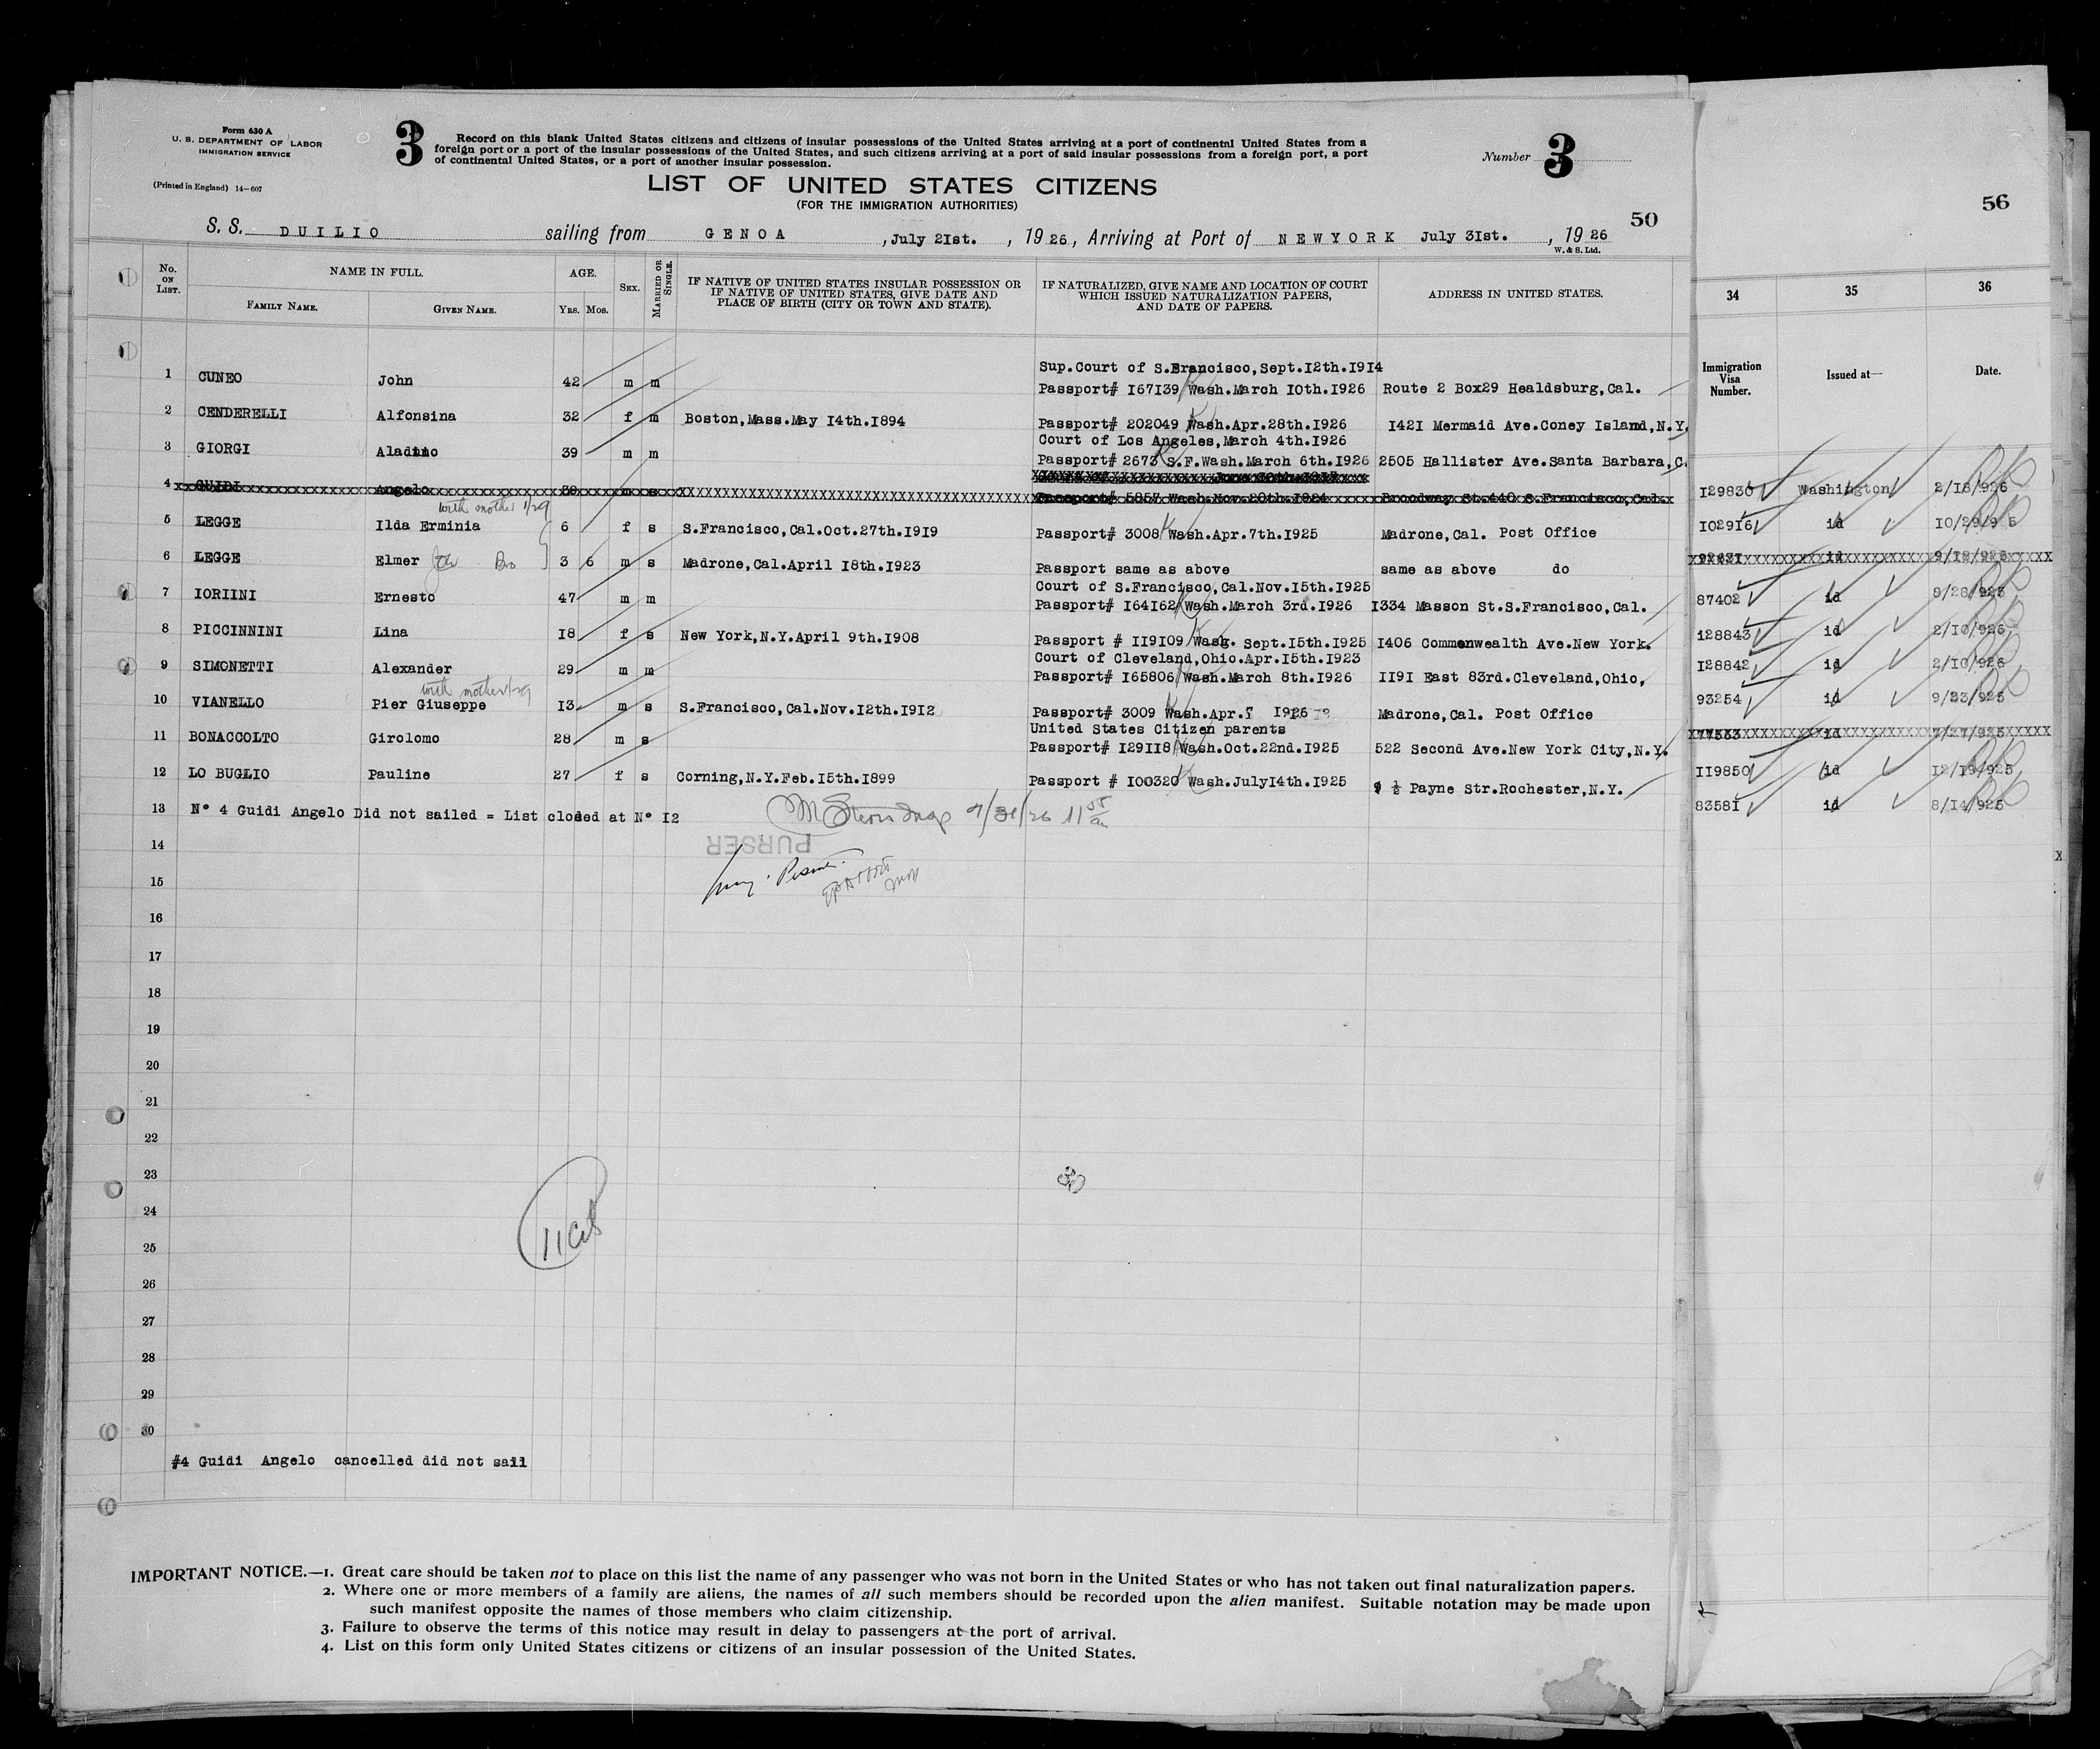 Form 630 A
U. S. DEPARTMENT OF LABOR
IMMIGRATION SERVICE
(Printed in England) 14—607
3
Record on this blank United States citizens and citizens of insular possessions of the United States arriving at a port of continental United States from a
foreign port or a port of the insular possessions of the United States, and such citizens arriving at a port of said insular possessions from a foreign port, a port
of continental United States, or a port of another insular possession.
Number 3
LIST OF UNITED STATES CITIZENS
(FOR THE IMMIGRATION AUTHORITIES)
50
S. S. DUILIO sailing from GENOA , July 2Ist. , 19 26, Arriving at Port of NEWYORK July 3Ist. , 19 26
W. & S. Ltd.
No. ON LIST.
NAME IN FULL.
FAMILY NAME. GIVEN NAME.
AGE.
YRS. MOS.
SEX.
MARRIED OR SINGLE.
IF NATIVE OF UNITED STATES INSULAR POSSESSION OR
IF NATIVE OF UNITED STATES, GIVE DATE AND
PLACE OF BIRTH (CITY OR TOWN AND STATE).
IF NATURALIZED, GIVE NAME AND LOCATION OF COURT
WHICH ISSUED NATURALIZATION PAPERS,
AND DATE OF PAPERS.
ADDRESS IN UNITED STATES.
Sup.Court of S.Francisco,Sept.I2th.I9I4
1 CUNEO John 42 m m Passport# I67I39 Wash.March I0th.I926 Route 2 Box29 Healdsburg,Cal.
2 CENDERELLI Alfonsina 32 f m Boston,Mass.May I4th.I894 Passport# 202049 Wash.Apr.28th.I926 I42I Mermaid Ave.Coney Island,N.Y.
Court of Los Angeles,March 4th.I926
3 GIORGI Aladino 39 m m Passport# 2673 S.F.Wash.March 6th.I926 2505 Hallister Ave.Santa Barbara,C.
4 GUIDI Angelo 39 m s Passport# 5857 Wash.Nov.20th.I924 Broadway St.440 S.Francisco,Cal.
with mother 1/29
5 LEGGE Ilda Erminia 6 f s S.Francisco,Cal.Oct.27th.I9I9 Passport# 3008 Wash.Apr.7th.I925 Madrone,Cal. Post Office
6 LEGGE Elmer Bro 3 6 m s Madrone,Cal.April I8th.I923 Passport same as above same as above do
Court of S.Francisco,Cal.Nov.I5th.I925
7 IORIINI Ernesto 47 m m Passport# I64I62 Wash.March 3rd.I926 I334 Masson St.S.Francisco,Cal.
8 PICCINNINI Lina I8 f s New York,N.Y.April 9th.I908 Passport # II9I09 Wasg. Sept.I5th.I925 I406 Commenwealth Ave.New York.
Court of Cleveland,Ohio.Apr.I5th.I923
9 SIMONETTI Alexander 29 m m Passport# I65806 Wash.March 8th.I926 II9I East 83rd.Cleveland,Ohio,
with mother 1/29
10 VIANELLO Pier Giuseppe I3 m s S.Francisco,Cal.Nov.I2th.I9I2 Passport# 3009 Wash.Apr.7 I926 Madrone,Cal. Post Office
United States Citizen parents
11 BONACCOLTO Girolomo 28 m s Passport# I29II8 Wash.Oct.22nd.I925 522 Second Ave.New York City,N.Y.
12 LO BUGLIO Pauline 27 f s Corning,N.Y.Feb.I5th.I899 Passport # I00320 Wash.JulyI4th.I925 9 ½ Payne Str.Rochester,N.Y.
13 N° 4 Guidi Angelo Did not sailed = List closed at N° I2
7/31/26 11 05 am
PURSER
14
15
16
17
18
19
20
21
22
23
24
25
26
27
28
29
30
11 Cit
#4 Guidi Angelo cancelled did not sail
IMPORTANT NOTICE.—1. Great care should be taken not to place on this list the name of any passenger who was not born in the United States or who has not taken out final naturalization papers.
2. Where one or more members of a family are aliens, the names of all such members should be recorded upon the alien manifest. Suitable notation may be made upon
such manifest opposite the names of those members who claim citizenship.
3. Failure to observe the terms of this notice may result in delay to passengers at the port of arrival.
4. List on this form only United States citizens or citizens of an insular possession of the United States.
56
34 35 36
Immigration Visa Number. Issued at— Date.
I29830 Washington 2/I8/926
I029I6 id I0/29/925
9263I id 9/I8/925
87402 id 9/28/925
I28843 id 2/I0/926
I28842 id 2/I0/926
93254 id 9/23/925
77533 id 7/27/925
II9850 id I2/I9/925
8358I id 8/I4/925